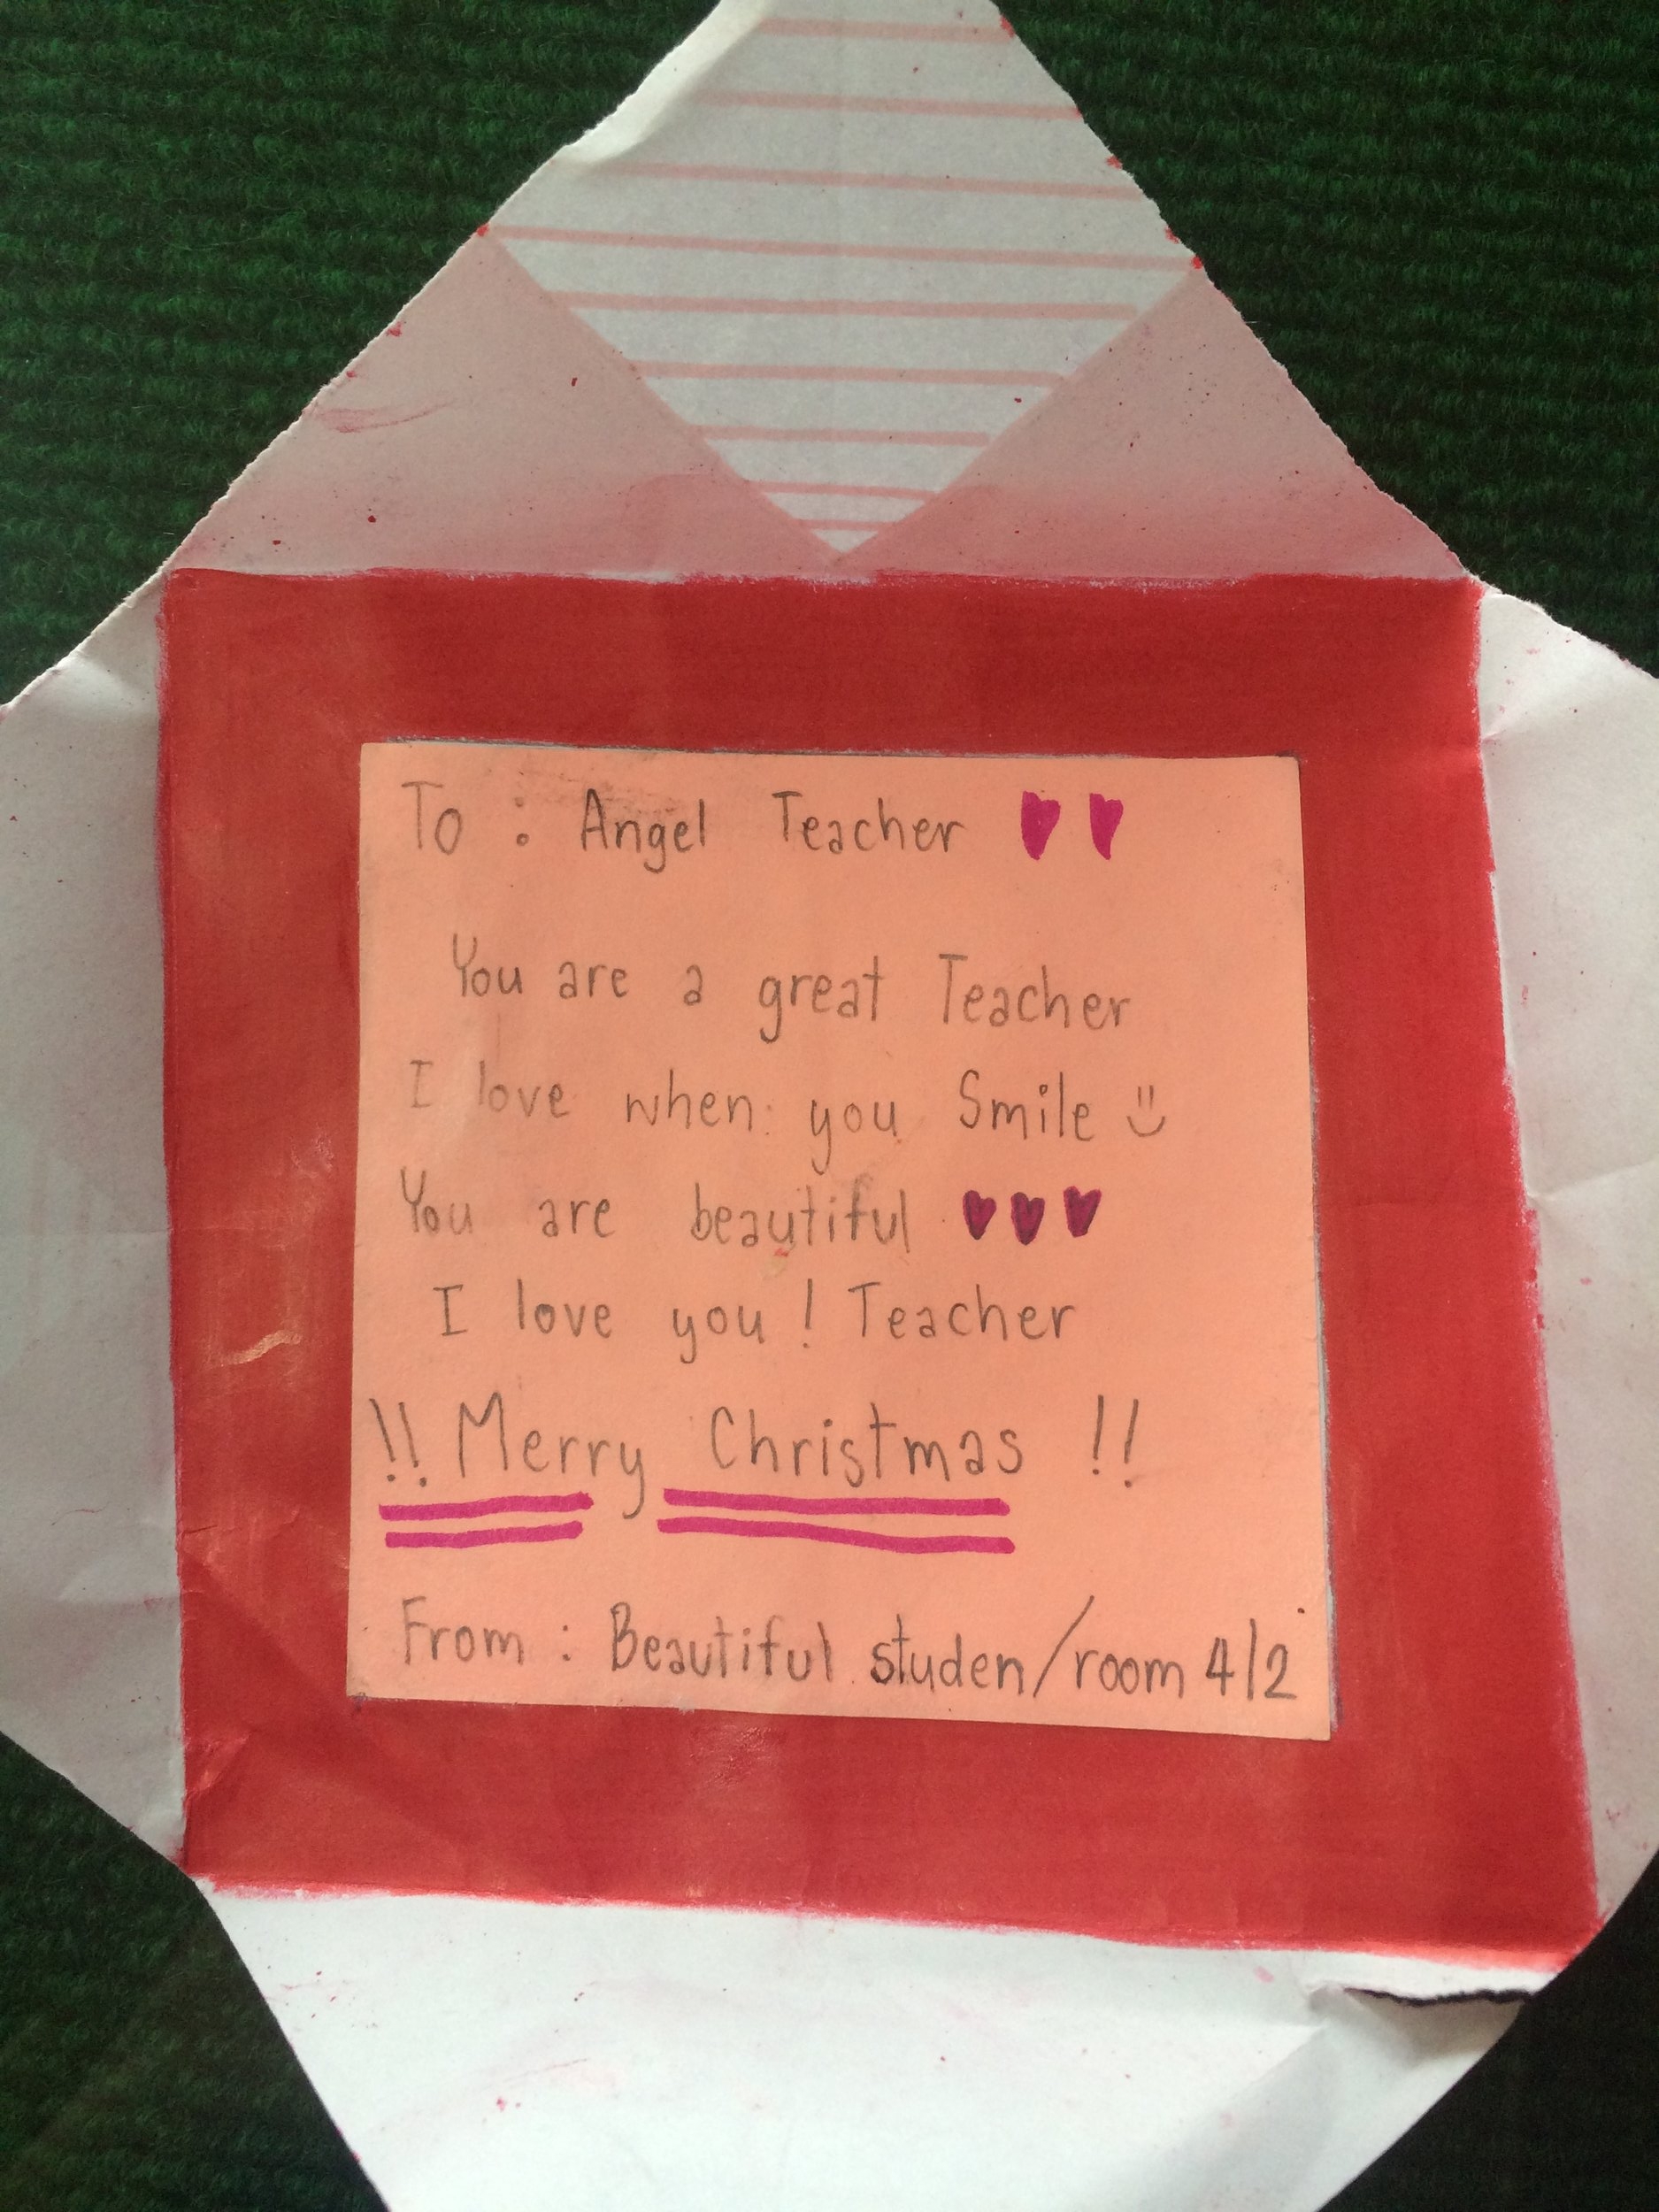 To : Angel Teacher ♥♥
You are a great Teacher
I love when you Smile
You are beautiful ♥♥♥
I love you! Teacher
!! Merry Christmas !!
From : Beautiful studen/room 4/2